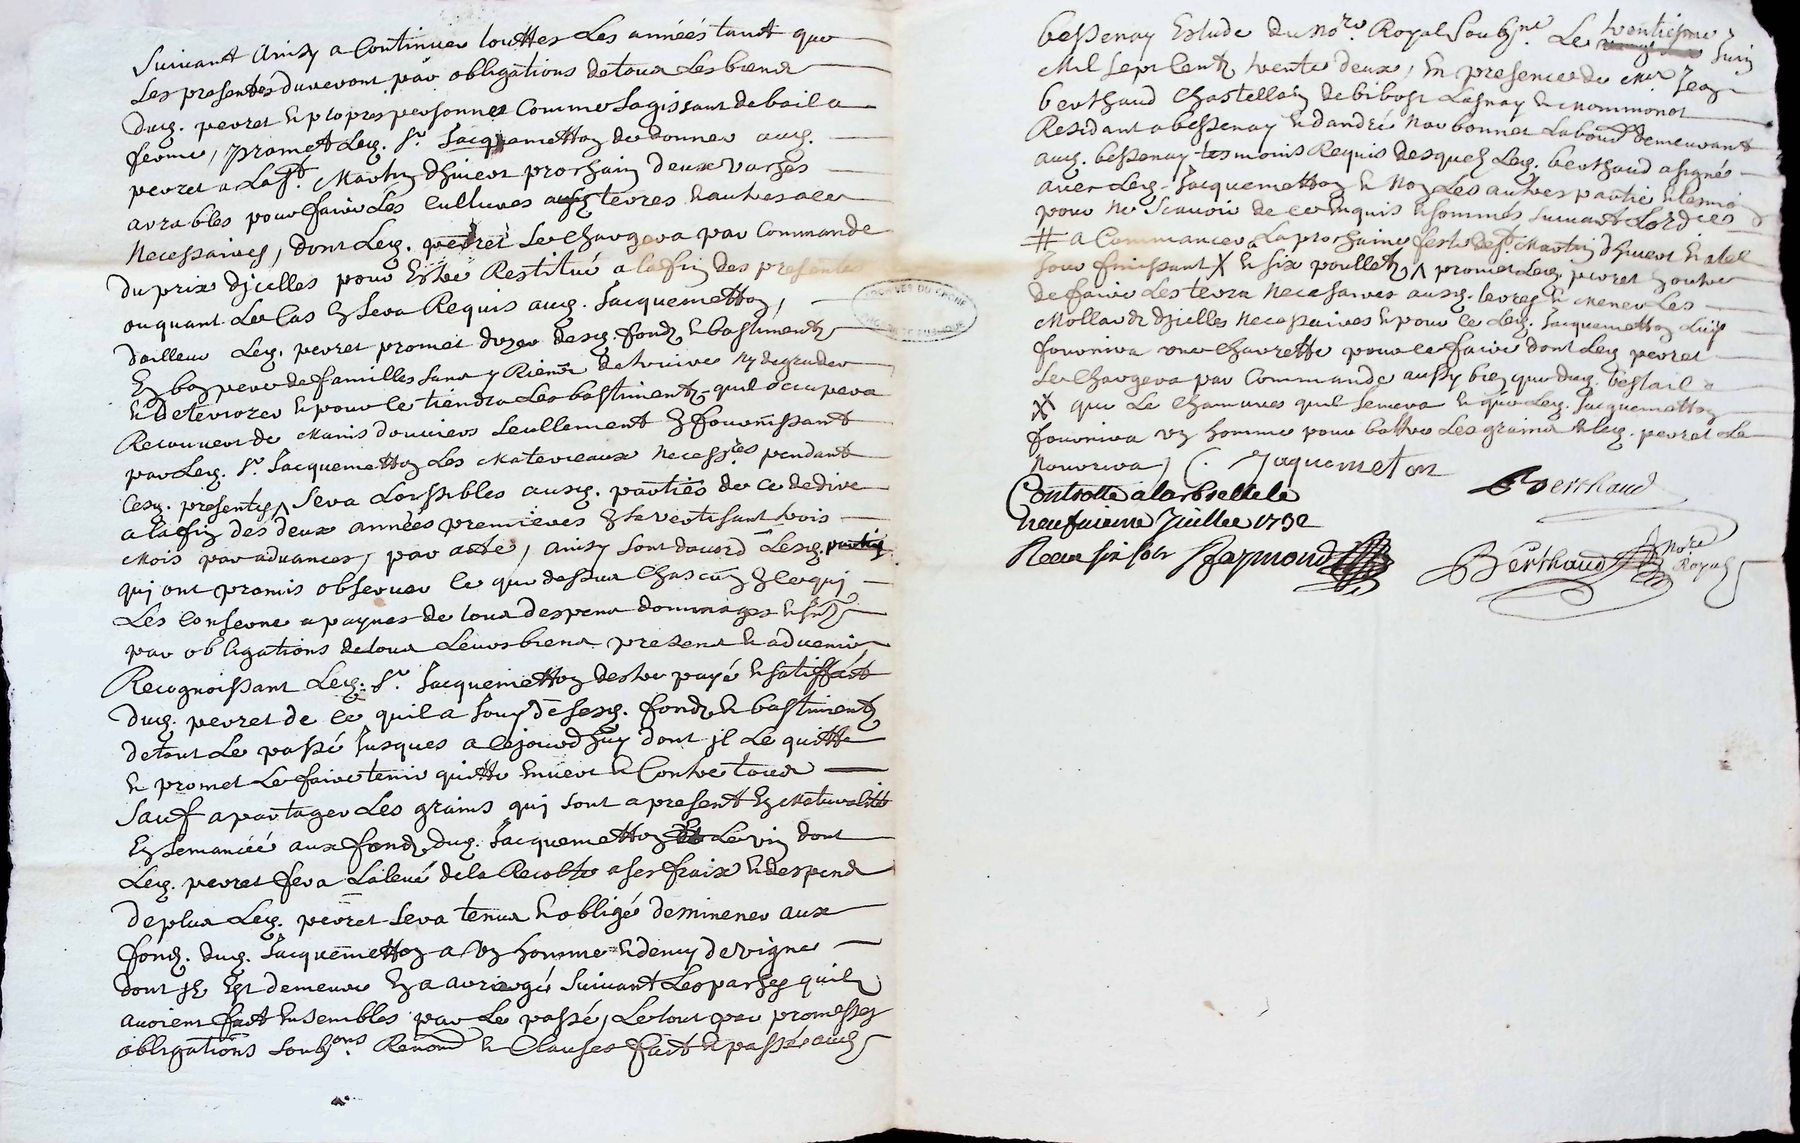 suivant ainsy a continuer touttes les années tant que
les presentes dureront par obligations de tous les biens
dud. peyret et propres personnes comme sagissant de bail a
ferme, promet led. Sr. Jacquemetton de donner aud.
peyret a la St. Martin dhiver prochain deux vaches
arables pour faire les cultures ausd. terres et autres a ce
necessaires, dont led. peyret se chargera par commande
du prix dicelles pour estre restitué a la fin des presentes
ou quant le cas en sera requis aud. Jacquemetton,
dailleur led. peyret promet duser desd. fonds et bastiments
en bon pere de familles sans y rien detruire ny degrader
et deteriorer et pour ce tiendra les bastiments quil occupera
recouvert de mains douvriers seullement en fournissant
par led. Sr. Jacquemetton les materieaux necessres pendant
lesd. presentes ^ sera loissibles ausd. parties de ce dedire
a la fin des deux années premieres en savertisant trois
mois par advances, par acte, ainsy sont dacord lesd. parties
qui ont promis observer ce que dessus chascun en ce qui
les conserne a paynes de tous despens dommages et intz
par obligations de tous leurs biens presens et advenir
Recognoissant led. Sr. Jacquemetton destre payé et satisffait
dud. peyret de ce quil a jouy de sesd. fonds et bastiments
de tout le passé jusques a cejourdhuy dont il le quitte
et promet le faire tenir quitte envers et contre tous
sauf a partager les grains qui sont a present en maturalité
ensemancée aux fonds dud. Jacquemetton et le vin dont
led. peyret fera la levé de la recolte a ses fraix et despens
de plus led. peyret sera tenus et obligé deminener aux
fonds dud. Jacquemetton a un homme et demy de vigne
dont il est demeure en a arriergé suivant les paches quils
avoient fait ensembles par le passé, le tout par promesses
obligations soubons renond et clauses fait et passé aud.
bessenay estude du nore. Royal soubné. le trentiesme juin
mil sept cents trente deux, en presence de Mre Jean
berthaud chastellain de bibost lasnay et montmonot
Residant a bessenay et dandré narbonnet labour demeurant
aud. bessenay tesmoins requis desquels led. berthaud a signé
avec led. Jacquemetton et non les autres partie et tesmoin
pour ne scavoir de ce enquis et sommés suivant lordces
# a commancer a la prochaine feste de St. Martin dhiver et a tel
jour finissant X et six poullets ^ promet led. peyret en outre
de faire les terra necessaires ausd. terres et mener les
mollards dicelles necessaires et pour ce led. Jacquemetton luy
fournira une charrette pour ce faire dont led. peyret
se chargera par commande aussy bien que dud. bestail
X que le chanvres quil semera et que led. Jacquemetton
fournira un homme pour battre les grains et led. peyret le
nourrira / C. Jaquemeton
Berthaud
Controllé a larbrelle le
neufvieme Juillet 1732
Receu six sols Raymond
Berthaud nore Royal